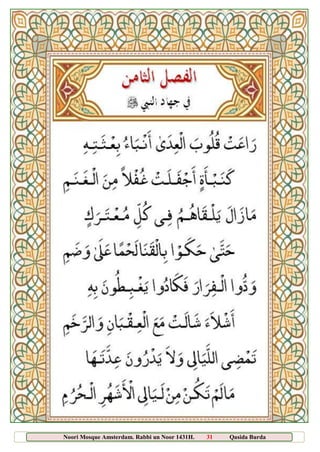 الفصل الثامن
في جهاد النبي ﷺ
رَاعَتْ قُلُوبَ الْعِدَىٰ أَنْبَاءُ بِعْثَتِهِ
كَنَبْأَةٍ أَجْفَلَتْ غُفْلاً مِنَ الْغَنَمِ
مَازَالَ يَلْقَاهُمُ فِي كُلِّ مُعْتَرَكٍ
حَتَّىٰ حَكَوْا بِالْقَنَا لَحْمًا عَلَىٰ وَضَمِ
وَدُّوا الْفِرَارَ فَكَادُوا يَغْبِطُونَ بِهِ
أَشْلَاءَ شَالَتْ مَعَ الْعِقْبَانِ وَالرَّخَمِ
تَمْضِي اللَّيَالِي وَلَا يَدْرُونَ عِدَّتَهَا
مَالَمْ تَكُنْ مِنْ لَيَالِي الْأَشْهُرِ الْحُرُمِ
Noori Mosque Amsterdam. Rabbi un Noor 1431H. 31 Qasida Burda